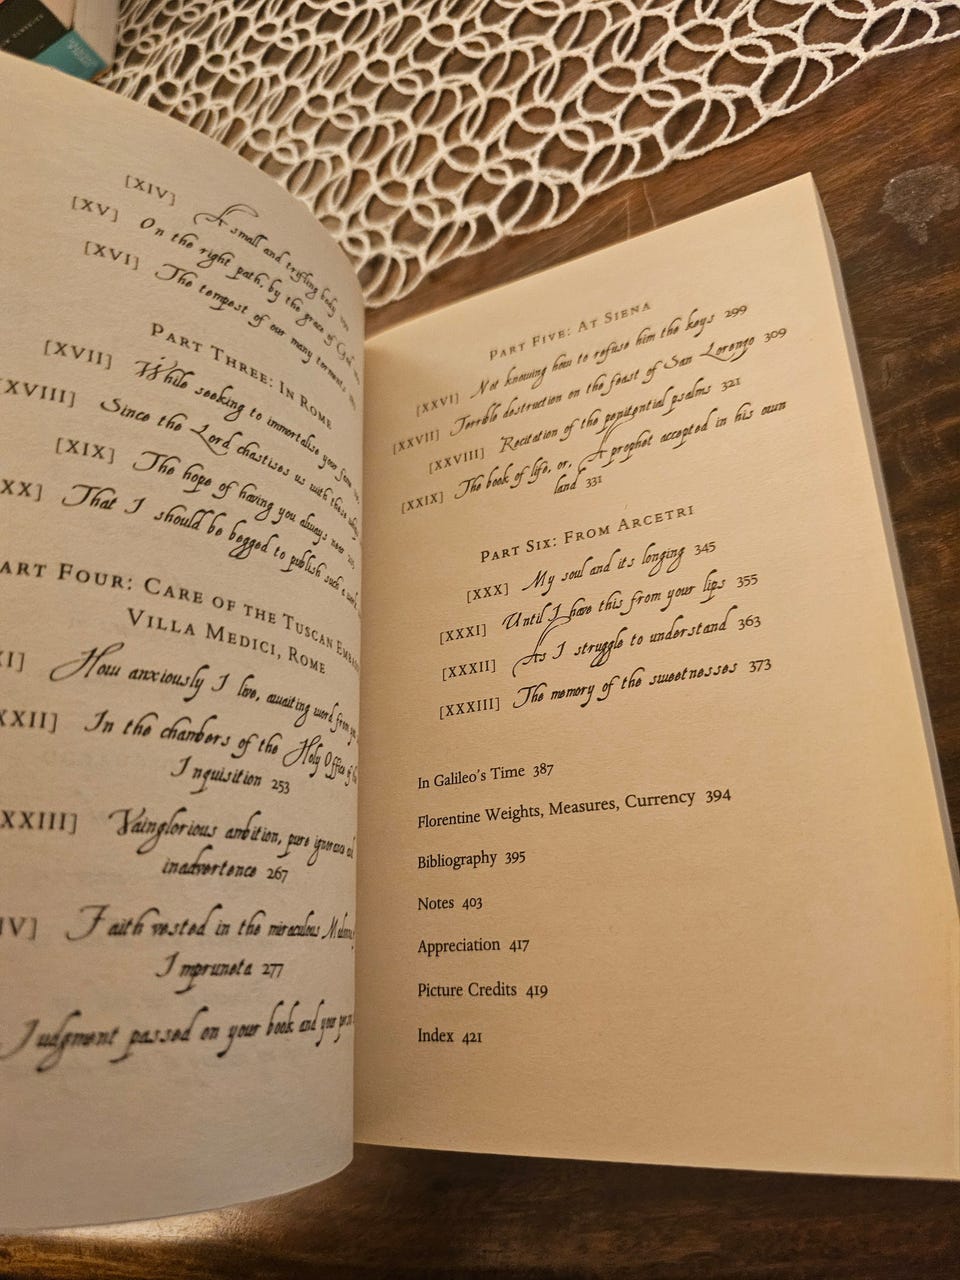 [XIV] A small and trifling body
[XV] On the right path, by the grace of God
[XVI] The tempest of our many torments
PART THREE: IN ROME
[XVII] While seeking to immortalise your fame
XVIII] Since the Lord chastises us with these
[XIX] The hope of having you always near
XX] That I should be begged to publish such a
ART FOUR: CARE OF THE TUSCAN EMBA
VILLA MEDICI, ROME
XI] How anxiously I live, awaiting word from
XXII] In the chambers of the Holy Office of
Inquisition 253
XXIII] Vainglorious ambition, pure ignorance
inadvertence 267
IV] Faith vested in the miraculous
Impruneta 277
Judgment passed on your book and your
PART FIVE: AT SIENA
[XXVI] Not knowing how to refuse him the keys 299
[XXVII] Terrible destruction on the feast of San Lorenzo 309
[XXVIII] Recitation of the penitential psalms 321
[XXIX] The book of life, or, A prophet accepted in his own
land 331
PART SIX: FROM ARCETRI
[XXX] My soul and its longing 345
[XXXI] Until I have this from your lips 355
[XXXII] As I struggle to understand 363
[XXXIII] The memory of the sweetnesses 373
In Galileo's Time 387
Florentine Weights, Measures, Currency 394
Bibliography 395
Notes 403
Appreciation 417
Picture Credits 419
Index 421